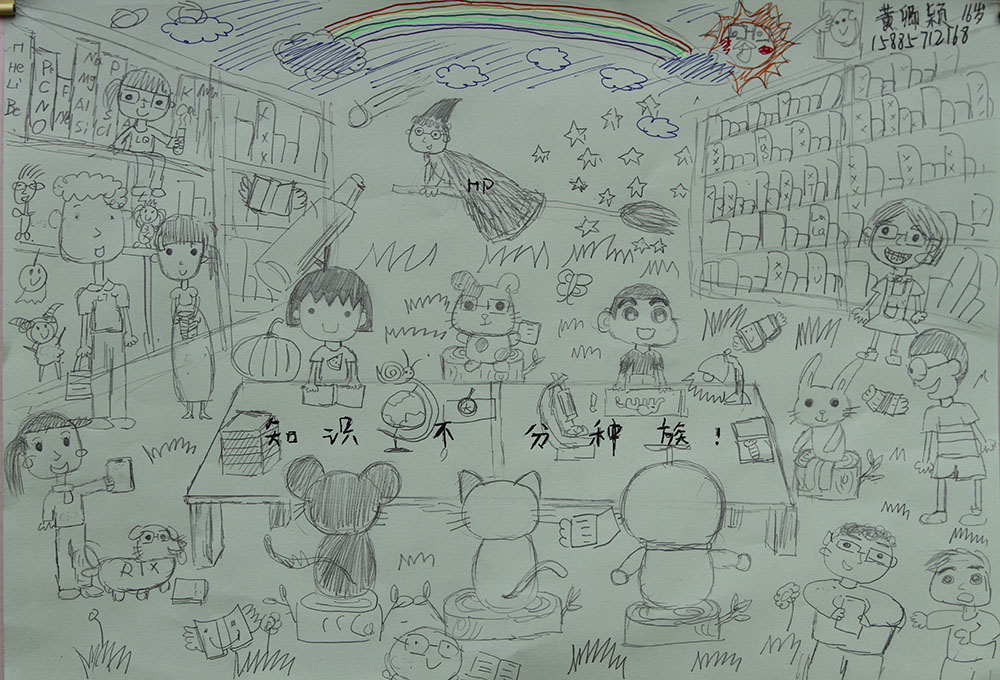 黄卿颖 16岁
15885712168
H
He
Li
Be
B
C
N
O
F
Ne
Na
Mg
Al
Si
P
S
Cl
K
Ca
LQ
HP
知识不分种族!
RTX